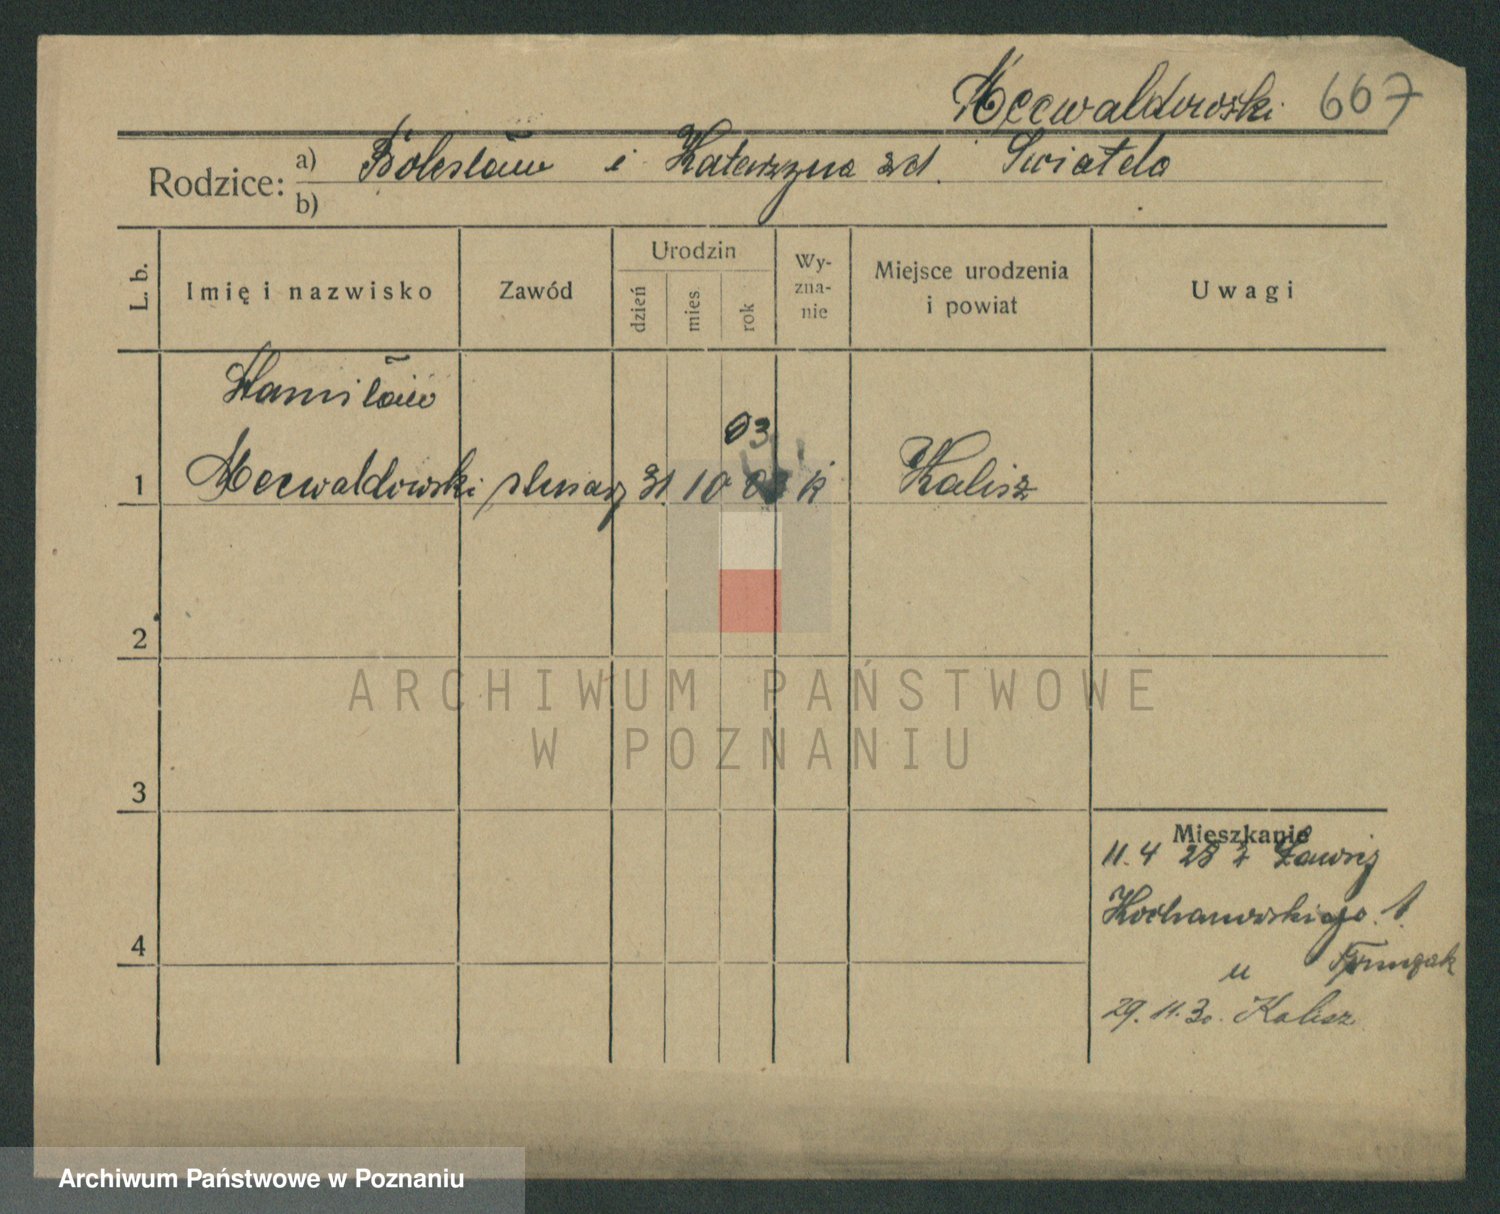 Mecwaldowski 667
Rodzice: a) Bolesław i Katarzyna zd. Światała
b)
L. b. Imię i nazwisko Zawód Urodzin dzień mies. rok Wyznanie Miejsce urodzenia i powiat Uwagi
Stanisław
03
1 Mecwaldowski ślusarz 31 10 03 k Kalisz
2
ARCHIWUM PAŃSTWOWE
W POZNANIU
3
Mieszkanie
11.4 28 z
Kochanowskiego 1.
4
u
29.11.30. Kalisz
Archiwum Państwowe w Poznaniu